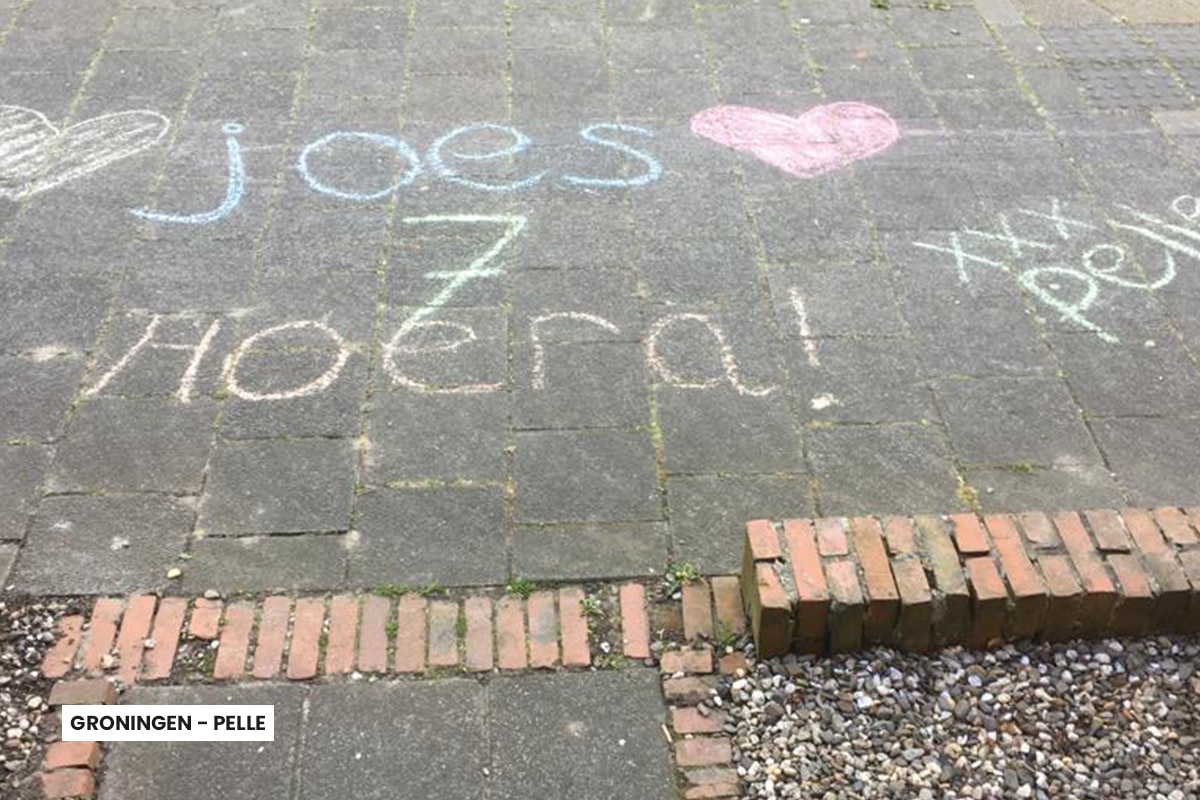 joes
7
Hoera!
xxx
Pelle
GRONINGEN - PELLE